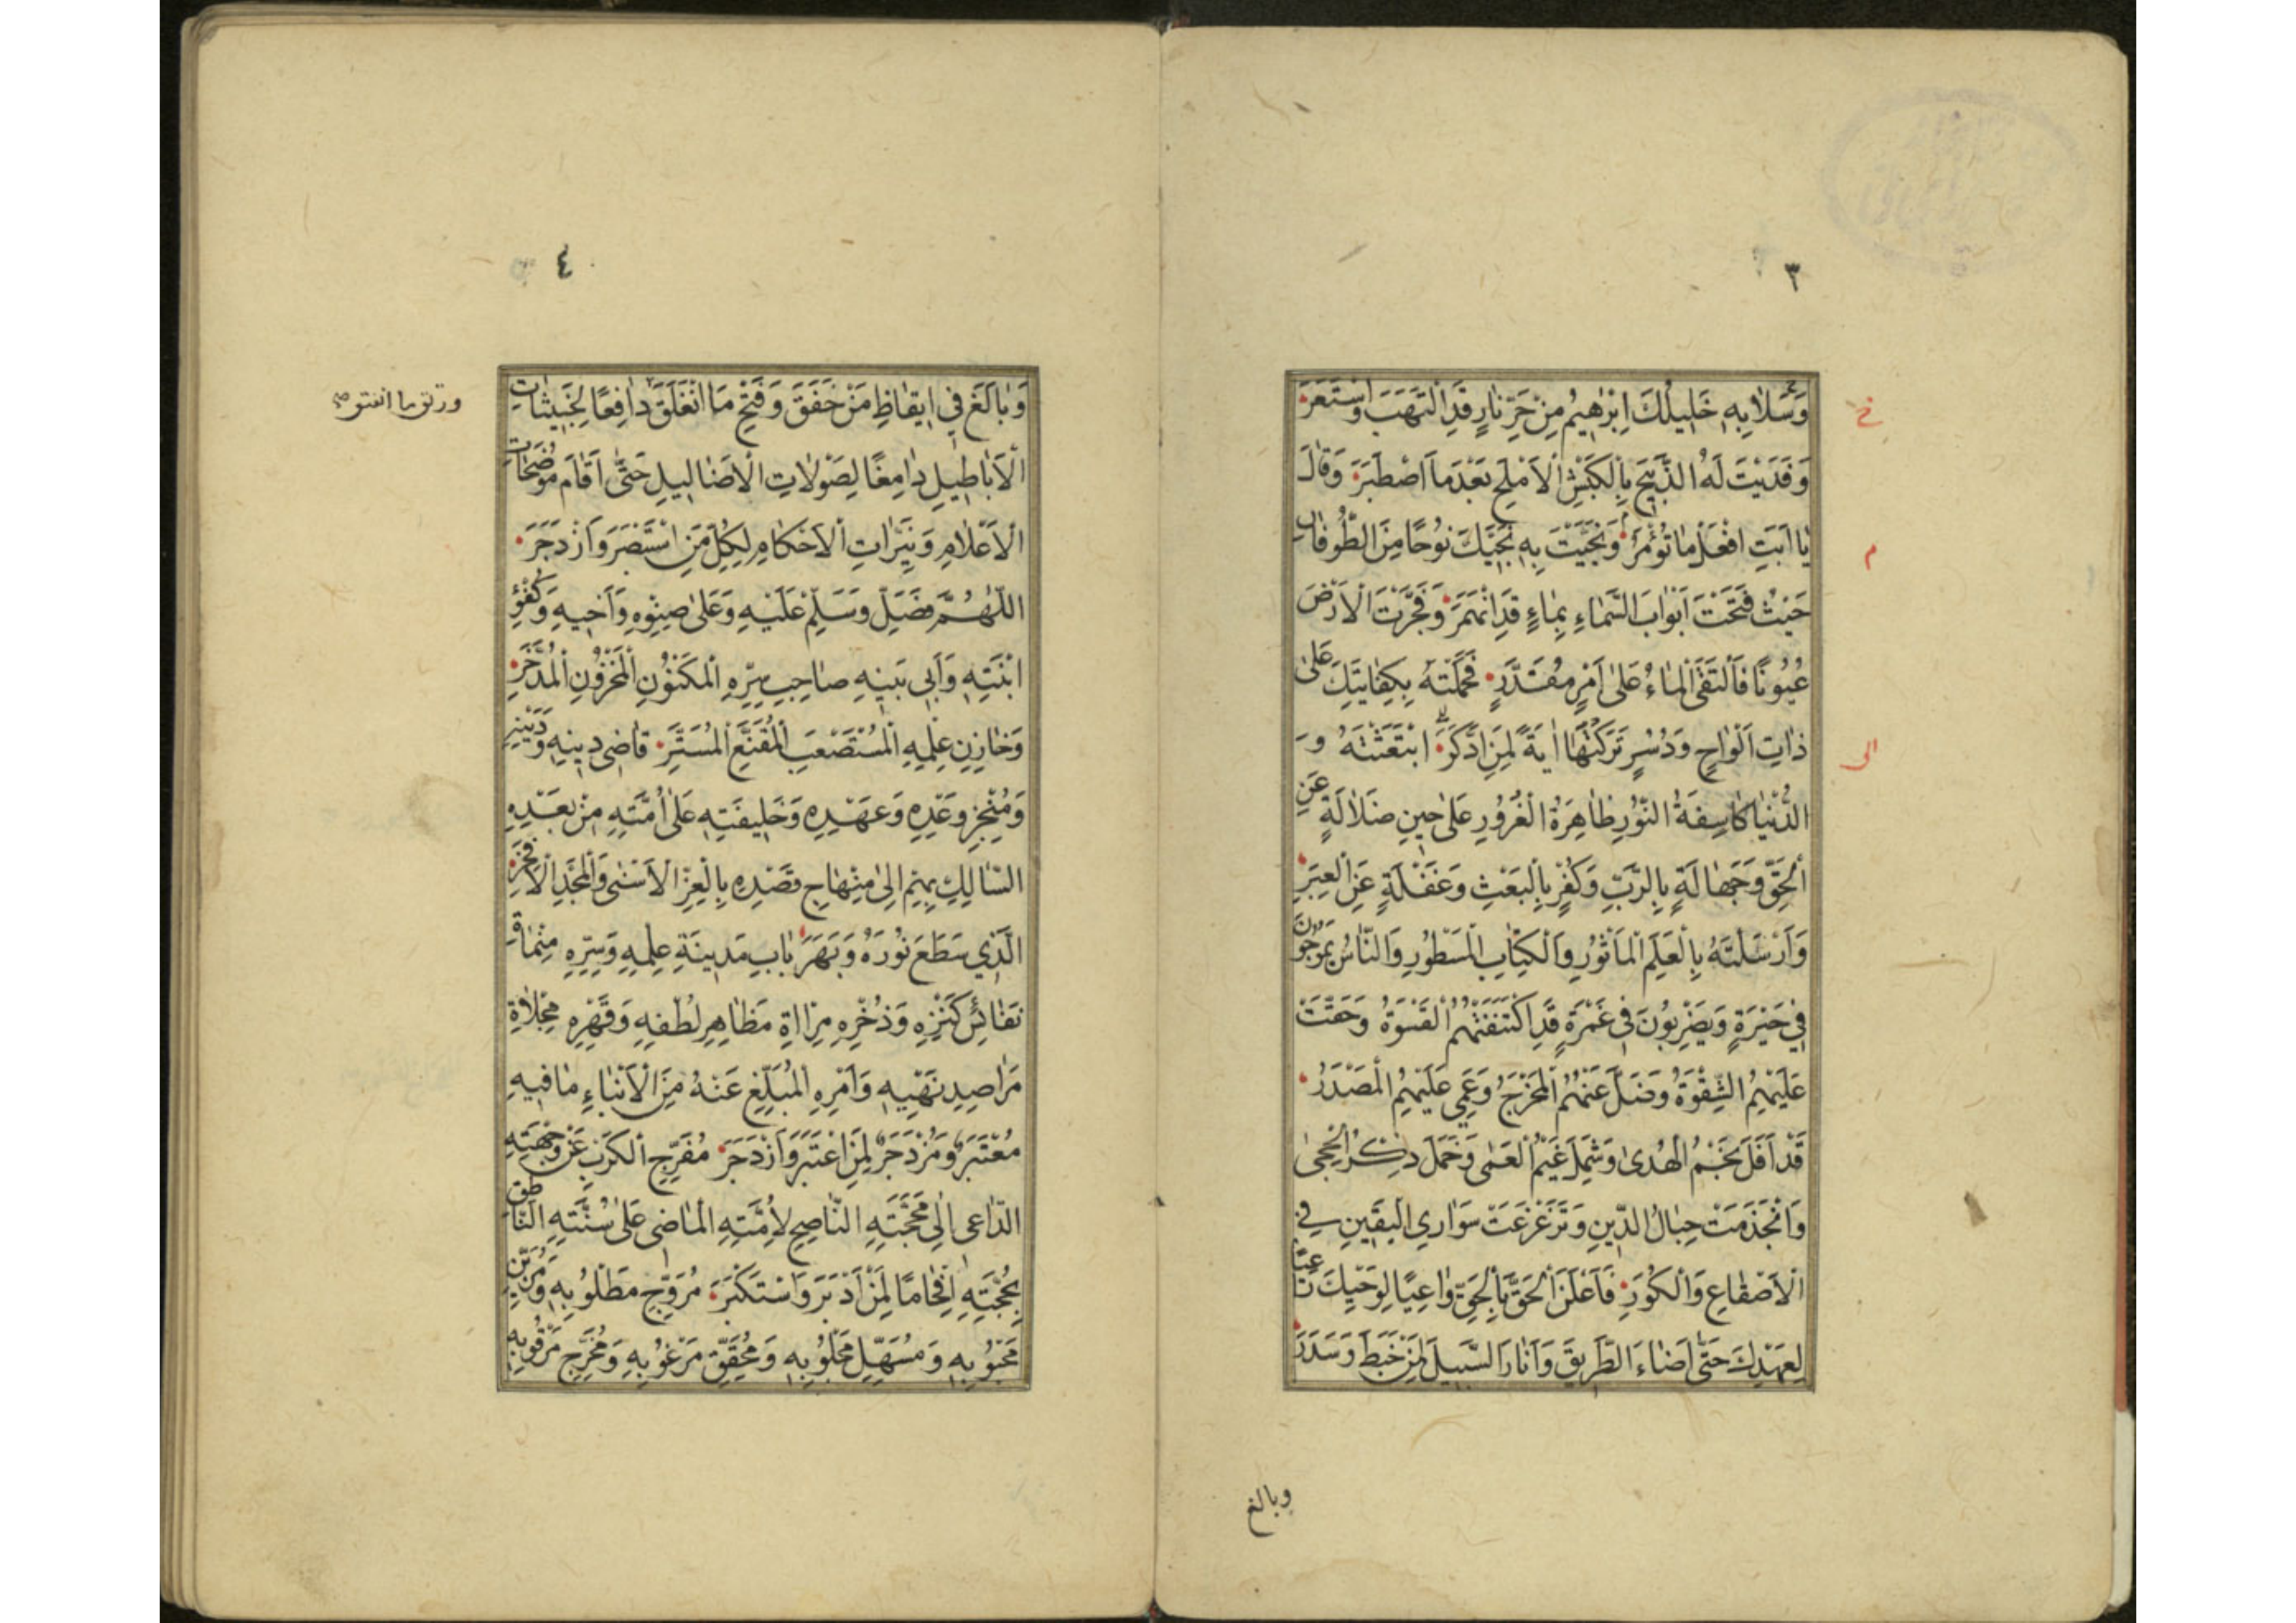 ٣
وَسَلَامًا بِهِ خَلِيلُكَ اِبْرٰهِيمُ مِنْ حَرِّ نَارٍ قَدِ الْتَهَبَ وَاسْتَعَرَ
وَفَدَيْتَ لَهُ الذَّبِيحَ بِالْكَبْشِ الْاَمْلَحِ بَعْدَمَا اصْطَبَرَ وَقَالَ
يَا اَبَتِ افْعَلْ مَا تُؤْمَرُ وَنَجَّيْتَ بِهِ نَجِيَّكَ نُوحًا مِنَ الطُّوفَانِ
حَيْثُ فَتَحْتَ اَبْوَابَ السَّمَاءِ بِمَاءٍ قَدِ انْهَمَرَ وَفَجَّرْتَ الْاَرْضَ
عُيُونًا فَالْتَقَى الْمَاءُ عَلٰى اَمْرٍ مُقَدَّرٍ فَحَمَلْتَهُ بِكِفَايَتِكَ عَلٰى
ذَاتِ اَلْوَاحٍ وَدُسُرٍ تَرَكْتَهَا اٰيَةً لِمَنِ ادَّكَرَ ابْتَعَثْتَهُ وَ
الدُّنْيَا كَاسِفَةُ النُّورِ ظَاهِرَةُ الْغُرُورِ عَلٰى حِينِ ضَلَالَةٍ عَنِ
الْحَقِّ وَجَهَالَةٍ بِالرَّبِّ وَكُفْرٍ بِالْبَعْثِ وَغَفْلَةٍ عَنِ الْعِبَرِ
وَاَرْسَلْتَهُ بِالْعَلَمِ الْمَأْثُورِ وَالْكِتَابِ الْمَسْطُورِ وَالنَّاسُ يَمُوجُونَ
فِي حَيْرَةٍ وَيَضْرِبُونَ فِي غَمْرَةٍ قَدِ اكْتَنَفَتْهُمُ الْقَسْوَةُ وَحَقَّتْ
عَلَيْهِمُ الشِّقْوَةُ وَضَلَّ عَنْهُمُ الْمَخْرَجُ وَعَمِيَ عَلَيْهِمُ الْمَصْدَرُ
قَدْ اَفَلَ نَجْمُ الْهُدٰى وَشَمِلَ غَيْمُ الْعَمٰى وَخَمَلَ ذِكْرُ الْحِجٰى
وَانْجَذَمَتْ حِبَالُ الدِّينِ وَتَزَعْزَعَتْ سَوَارِي الْيَقِينِ فِي
الْاَصْقَاعِ وَالْكُوَرِ فَاَعْلَنَ الْحَقَّ بِالْحَقِّ وَاعِيًا لِوَحْيِكَ
لِعَهْدِكَ حَتّٰى اَضَاءَ الطَّرِيقَ وَاَنَارَ السَّبِيلَ لِمَنْ خَبَطَ وَسَدَرَ
وبالغ
خ
م
الى
٤
وَبَالَغَ فِي اِيقَاظِ مَنْ خَفَقَ وَفَتْحِ مَا انْغَلَقَ دَافِعًا لِخَبِيثَاتِ
الْاَبَاطِيلِ دَامِغًا لِصَوْلَاتِ الْاَضَالِيلِ حَتّٰى اَقَامَ مُوضِحَاتِ
الْاَعْلَامِ وَنَيِّرَاتِ الْاَحْكَامِ لِكُلِّ مَنِ اسْتَبْصَرَ وَازْدَجَرَ
اللّٰهُمَّ فَصَلِّ وَسَلِّمْ عَلَيْهِ وَعَلٰى صِنْوِهِ وَاَخِيهِ وَكُفْؤِ
ابْنَتِهِ وَاَبِي بَنِيهِ صَاحِبِ سِرِّهِ الْمَكْنُونِ الْمَخْزُونِ الْمُدَّخَرِ
وَخَازِنِ عِلْمِهِ الْمُسْتَصْعَبِ الْمُقَنَّعِ الْمُسَتَّرِ قَاضِي دِينِهِ وَدَيْنِهِ
وَمُنْجِزِ وَعْدِهِ وَعَهْدِهِ وَخَلِيفَتِهِ عَلٰى اُمَّتِهِ مِنْ بَعْدِهِ
السَّالِكِ بِهِمْ اِلٰى مِنْهَاجِ قَصْدِهِ بِالْعِزِّ الْاَسْنٰى وَالْمَجْدِ الْاَفْخَرِ
الَّذِي سَطَعَ نُورُهُ وَبَهَرَ بَابِ مَدِينَةِ عِلْمِهِ وَسِرِّهِ
نَفَائِسِ كَنْزِهِ وَذُخْرِهِ مِرْاٰةِ مَظَاهِرِ لُطْفِهِ وَقَهْرِهِ مِجْلَاةِ
مَرَاصِدِ نَهْيِهِ وَاَمْرِهِ الْمُبَلِّغِ عَنْهُ مِنَ الْاَنْبَاءِ مَا فِيهِ
مُعْتَبَرٌ وَمُزْدَجَرٌ لِمَنِ اعْتَبَرَ وَازْدَجَرَ مُفَرِّجِ الْكَرْبِ عَنْ وَجْهَتِهِ
الدَّاعِي اِلٰى مَحَجَّتِهِ النَّاصِحِ لِاُمَّتِهِ الْمَاضِي عَلٰى سُنَّتِهِ النَّاطِقِ
بِحُجَّتِهِ اِفْحَامًا لِمَنْ اَدْبَرَ وَاسْتَكْبَرَ مُرَوِّجِ مَطْلُوبِهِ وَمُزَيِّنِ
مَحْبُوبِهِ وَمُسَهِّلِ مَجْلُوبِهِ وَمُحَقِّقِ مَرْغُوبِهِ وَمُخَرِّجِ مَرْقُوبِهِ
ورتق ما انفتق صح